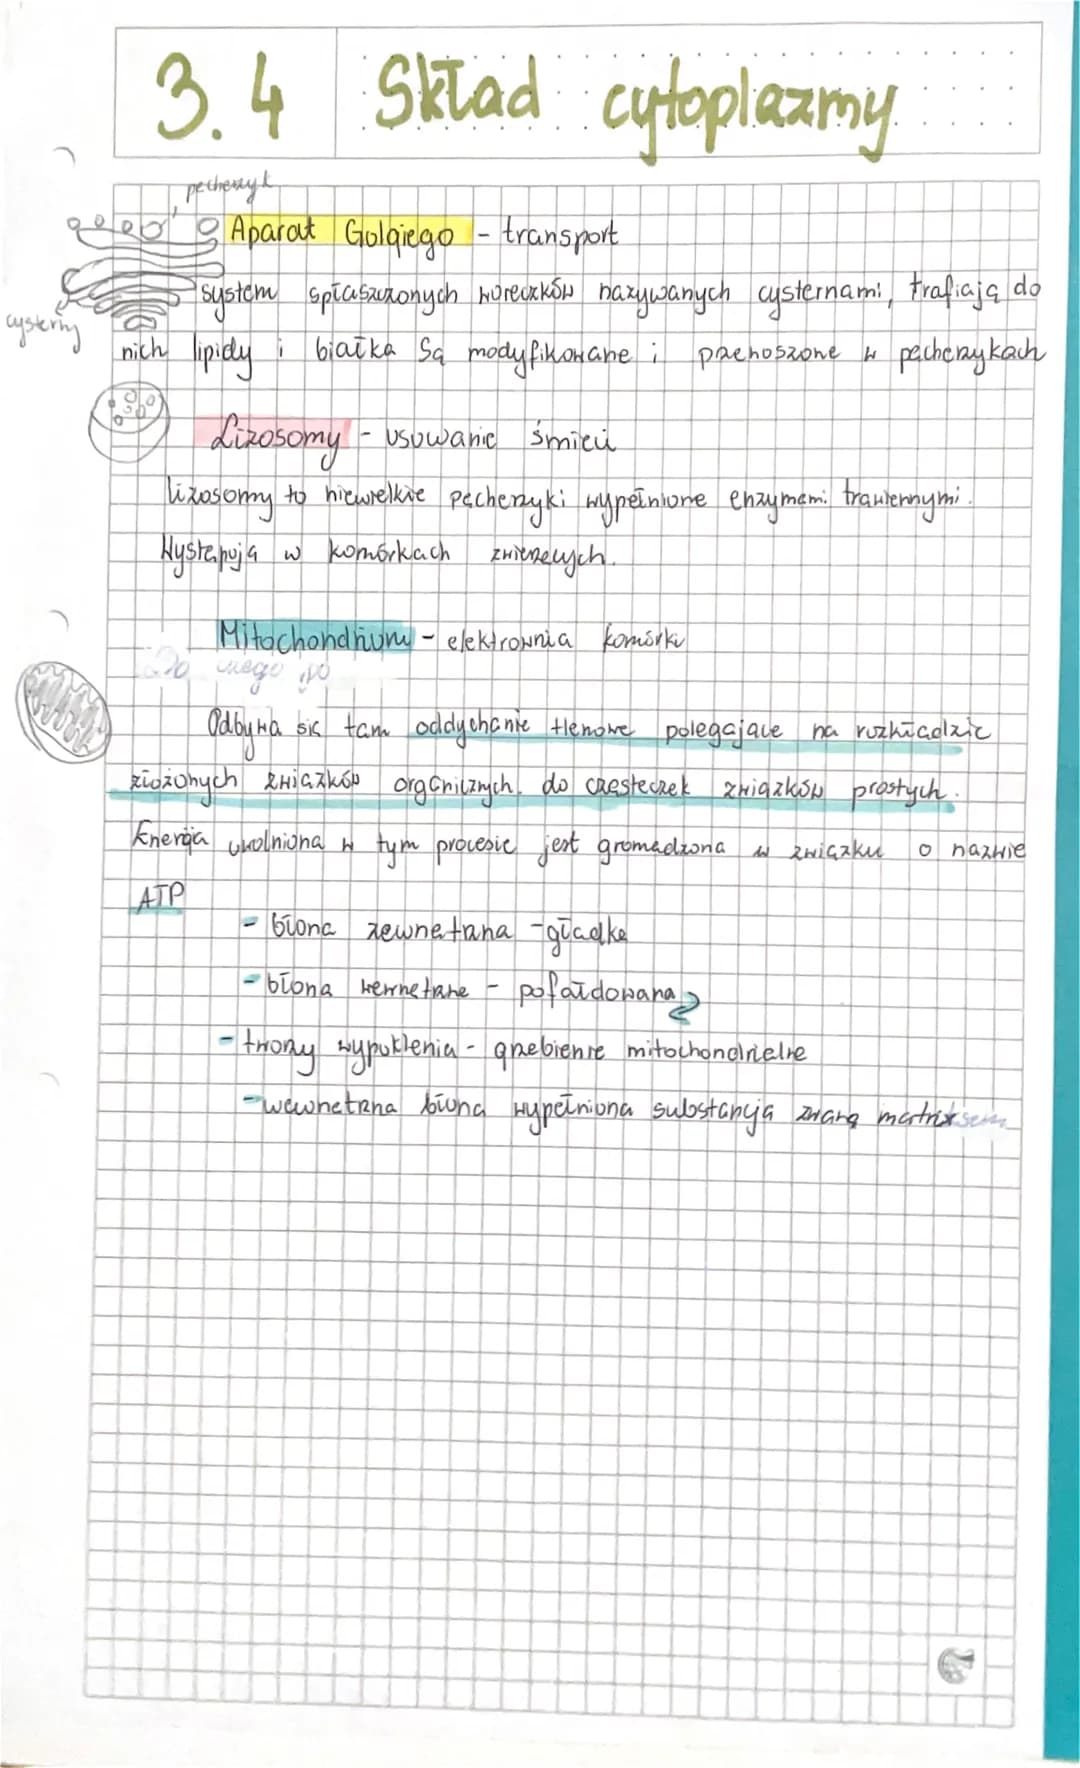 3.4 Skład cytoplazmy
pęcherzyk
Aparat Golgiego - transport
system spłaszczonych woreczków nazywanych cysternami, trafiają do
cysterny
nich lipidy i białka są modyfikowane i przenoszone w pęcherzykach
Lizosomy - usuwanie śmieci
lizosomy to niewielkie pęcherzyki wypełnione enzymami trawiennymi.
Występują w komórkach zwierzęcych.
Mitochondrium - elektrownia komórki
Odbywa się tam oddychanie tlenowe polegające na rozkładzie
złożonych związków organicznych do cząsteczek związków prostych.
Energia uwolniona w tym procesie jest gromadzona w związku o nazwie
ATP
- błona zewnętrzna - gładka
- błona wewnętrzna - pofałdowana
- tworzy wypuklenia - grzebienie mitochondrialne
- wewnętrzna błona wypełniona substancją zwaną matriksem